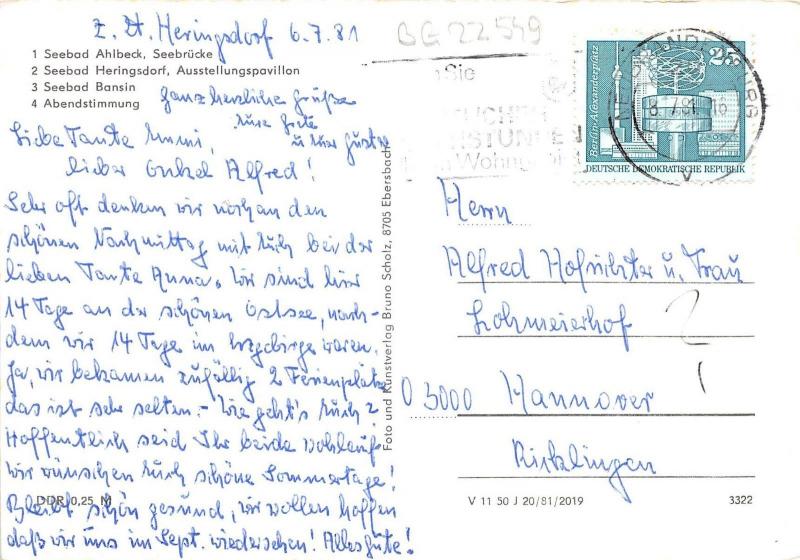 z. Zt. Heringsdorf 6.7.81
BG 22549
1 Seebad Ahlbeck, Seebrücke
2 Seebad Heringsdorf, Ausstellungspavillon
3 Seebad Bansin
4 Abendstimmung
Ganz herzliche Grüße
Eure Grete
u. Euer Gustav
Liebe Tante Emmi,
lieber Onkel Alfred!
Sehr oft denken wir noch an den
schönen Nachmittag mit Euch bei der
lieben Tante Anna. Wir sind hier
14 Tage an der schönen Ostsee, nach-
dem wir 14 Tage im Erzgebirge waren.
Ja, wir bekamen zufällig 2 Ferienplätze
das ist sehr selten. – Wie geht's Euch?
Hoffentlich seid Ihr beide wohlauf.
Wir wünschen Euch schöne Sommertage!
Bleibt schön gesund, wir wollen hoffen
daß wir uns im Sept. wiedersehen! Alles Gute!
DDR 0,25 M
Foto und Kunstverlag Bruno Scholz, 8705 Ebersbach
Sie
STUNDEN
Wohngebiet
8.7.81.16
Berlin-Alexanderplatz
25
DEUTSCHE DEMOKRATISCHE REPUBLIK
Herrn
Alfred u. Frau
Lohmeierhof 2
1
O 3000 Hannover
Ricklingen
V 11 50 J 20/81/2019
3322